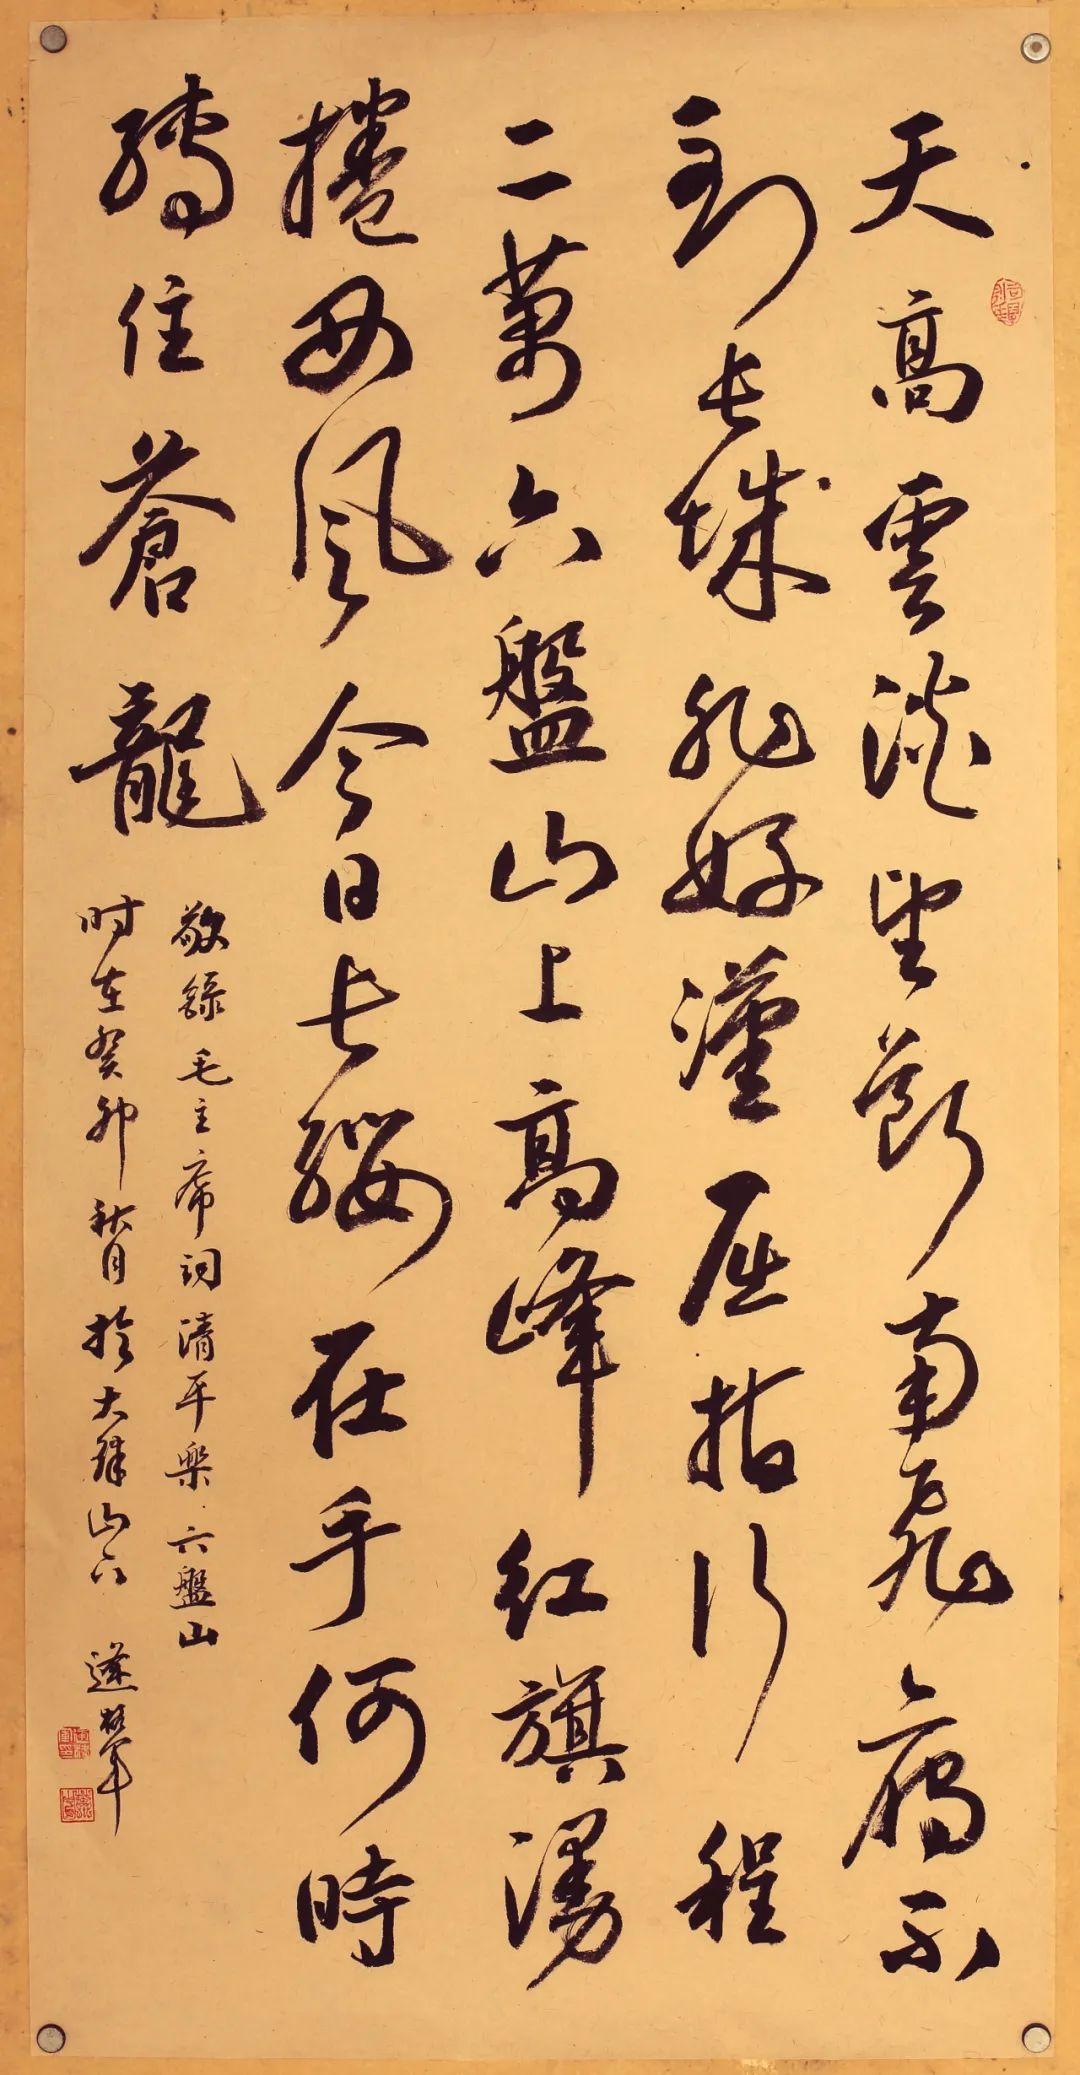 天高雲淡望斷南飛雁不
到長城非好漢屈指行程
二萬六盤山上高峰红旗漫
捲西风今日長纓在手何時
縛住蒼龍
敬録毛主席词清平樂六盤山
时在癸卯秋月於大珠山下